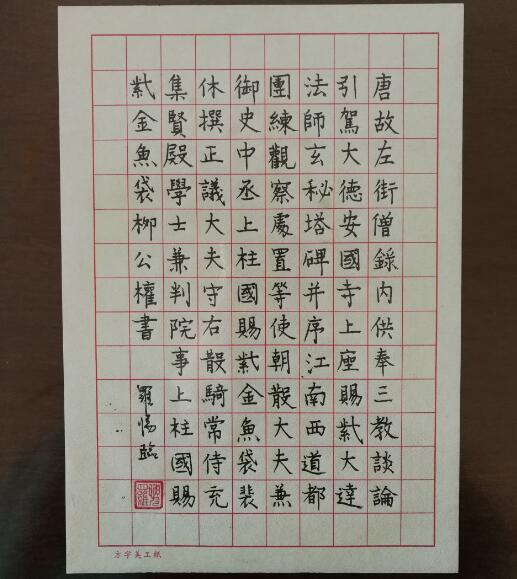 唐故左街僧錄內供奉三教談論
引駕大德安國寺上座賜紫大達
法師玄秘塔碑并序江南西道都
團練觀察處置等使朝散大夫兼
御史中丞上柱國賜紫金魚袋裴
休撰正議大夫守右散騎常侍充
集賢殿學士兼判院事上柱國賜
紫金魚袋柳公權書
羅臨
方字美工紙